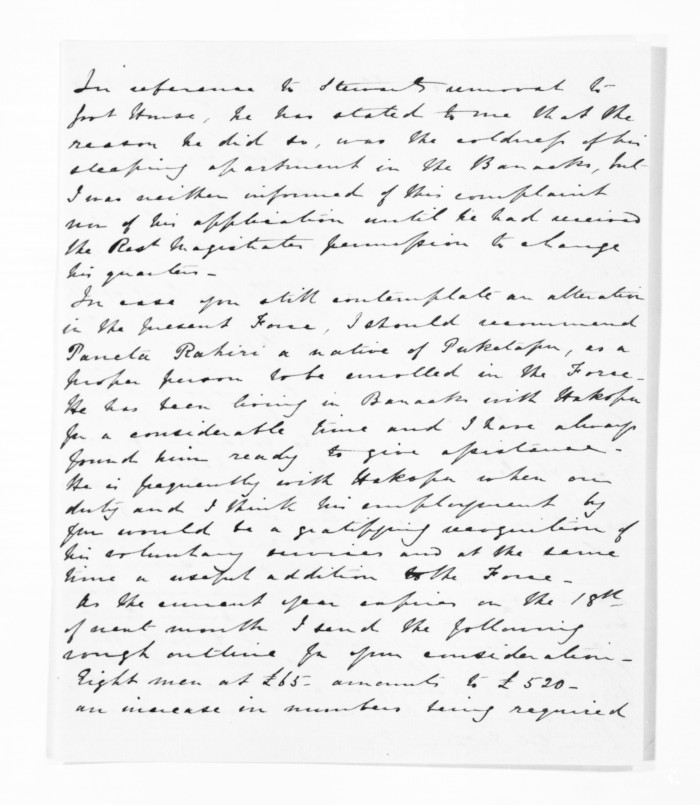 In reference to Stewarts removal to
foot House, he has stated to me that the
reason he did so, was the coldness of his
sleeping apartment in the Banacks, but
I was neither informed of this complaint
nor of his application until he had received
the Rest Magistrates permission to change
his quarters -
In case you still contemplate an alteration
in the present Force, I should recommend
Paneta Rahiri a native of Puketapu, as a
proper person to be enrolled in the Force -
He has been living in Banacks with Hakopa
for a considerable time and I have always
found him ready to give assistance -
He is frequently with Hakopa when on
duty and I think his employment by
you would be a gratifying recognition of
his voluntary services and at the same
time a useful addition to the Force -
As the current year expires on the 18th
of next month I send the following
rough outline for your consideration -
Eight men at £65 - amounts to £520 -
an increase in numbers being required